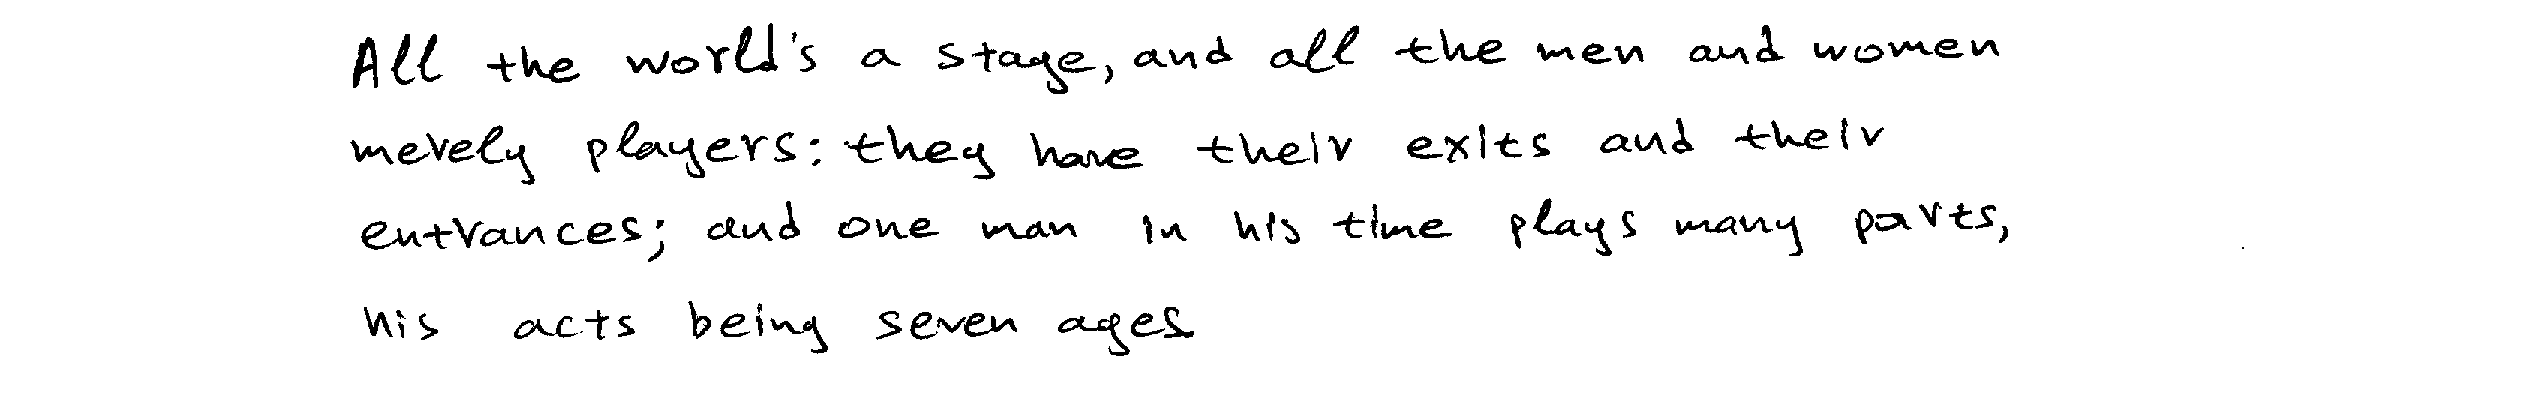 All the world's a stage, and all the men and women
merely players: they have their exits and their
entrances; and one man in his time plays many parts,
his acts being seven ages